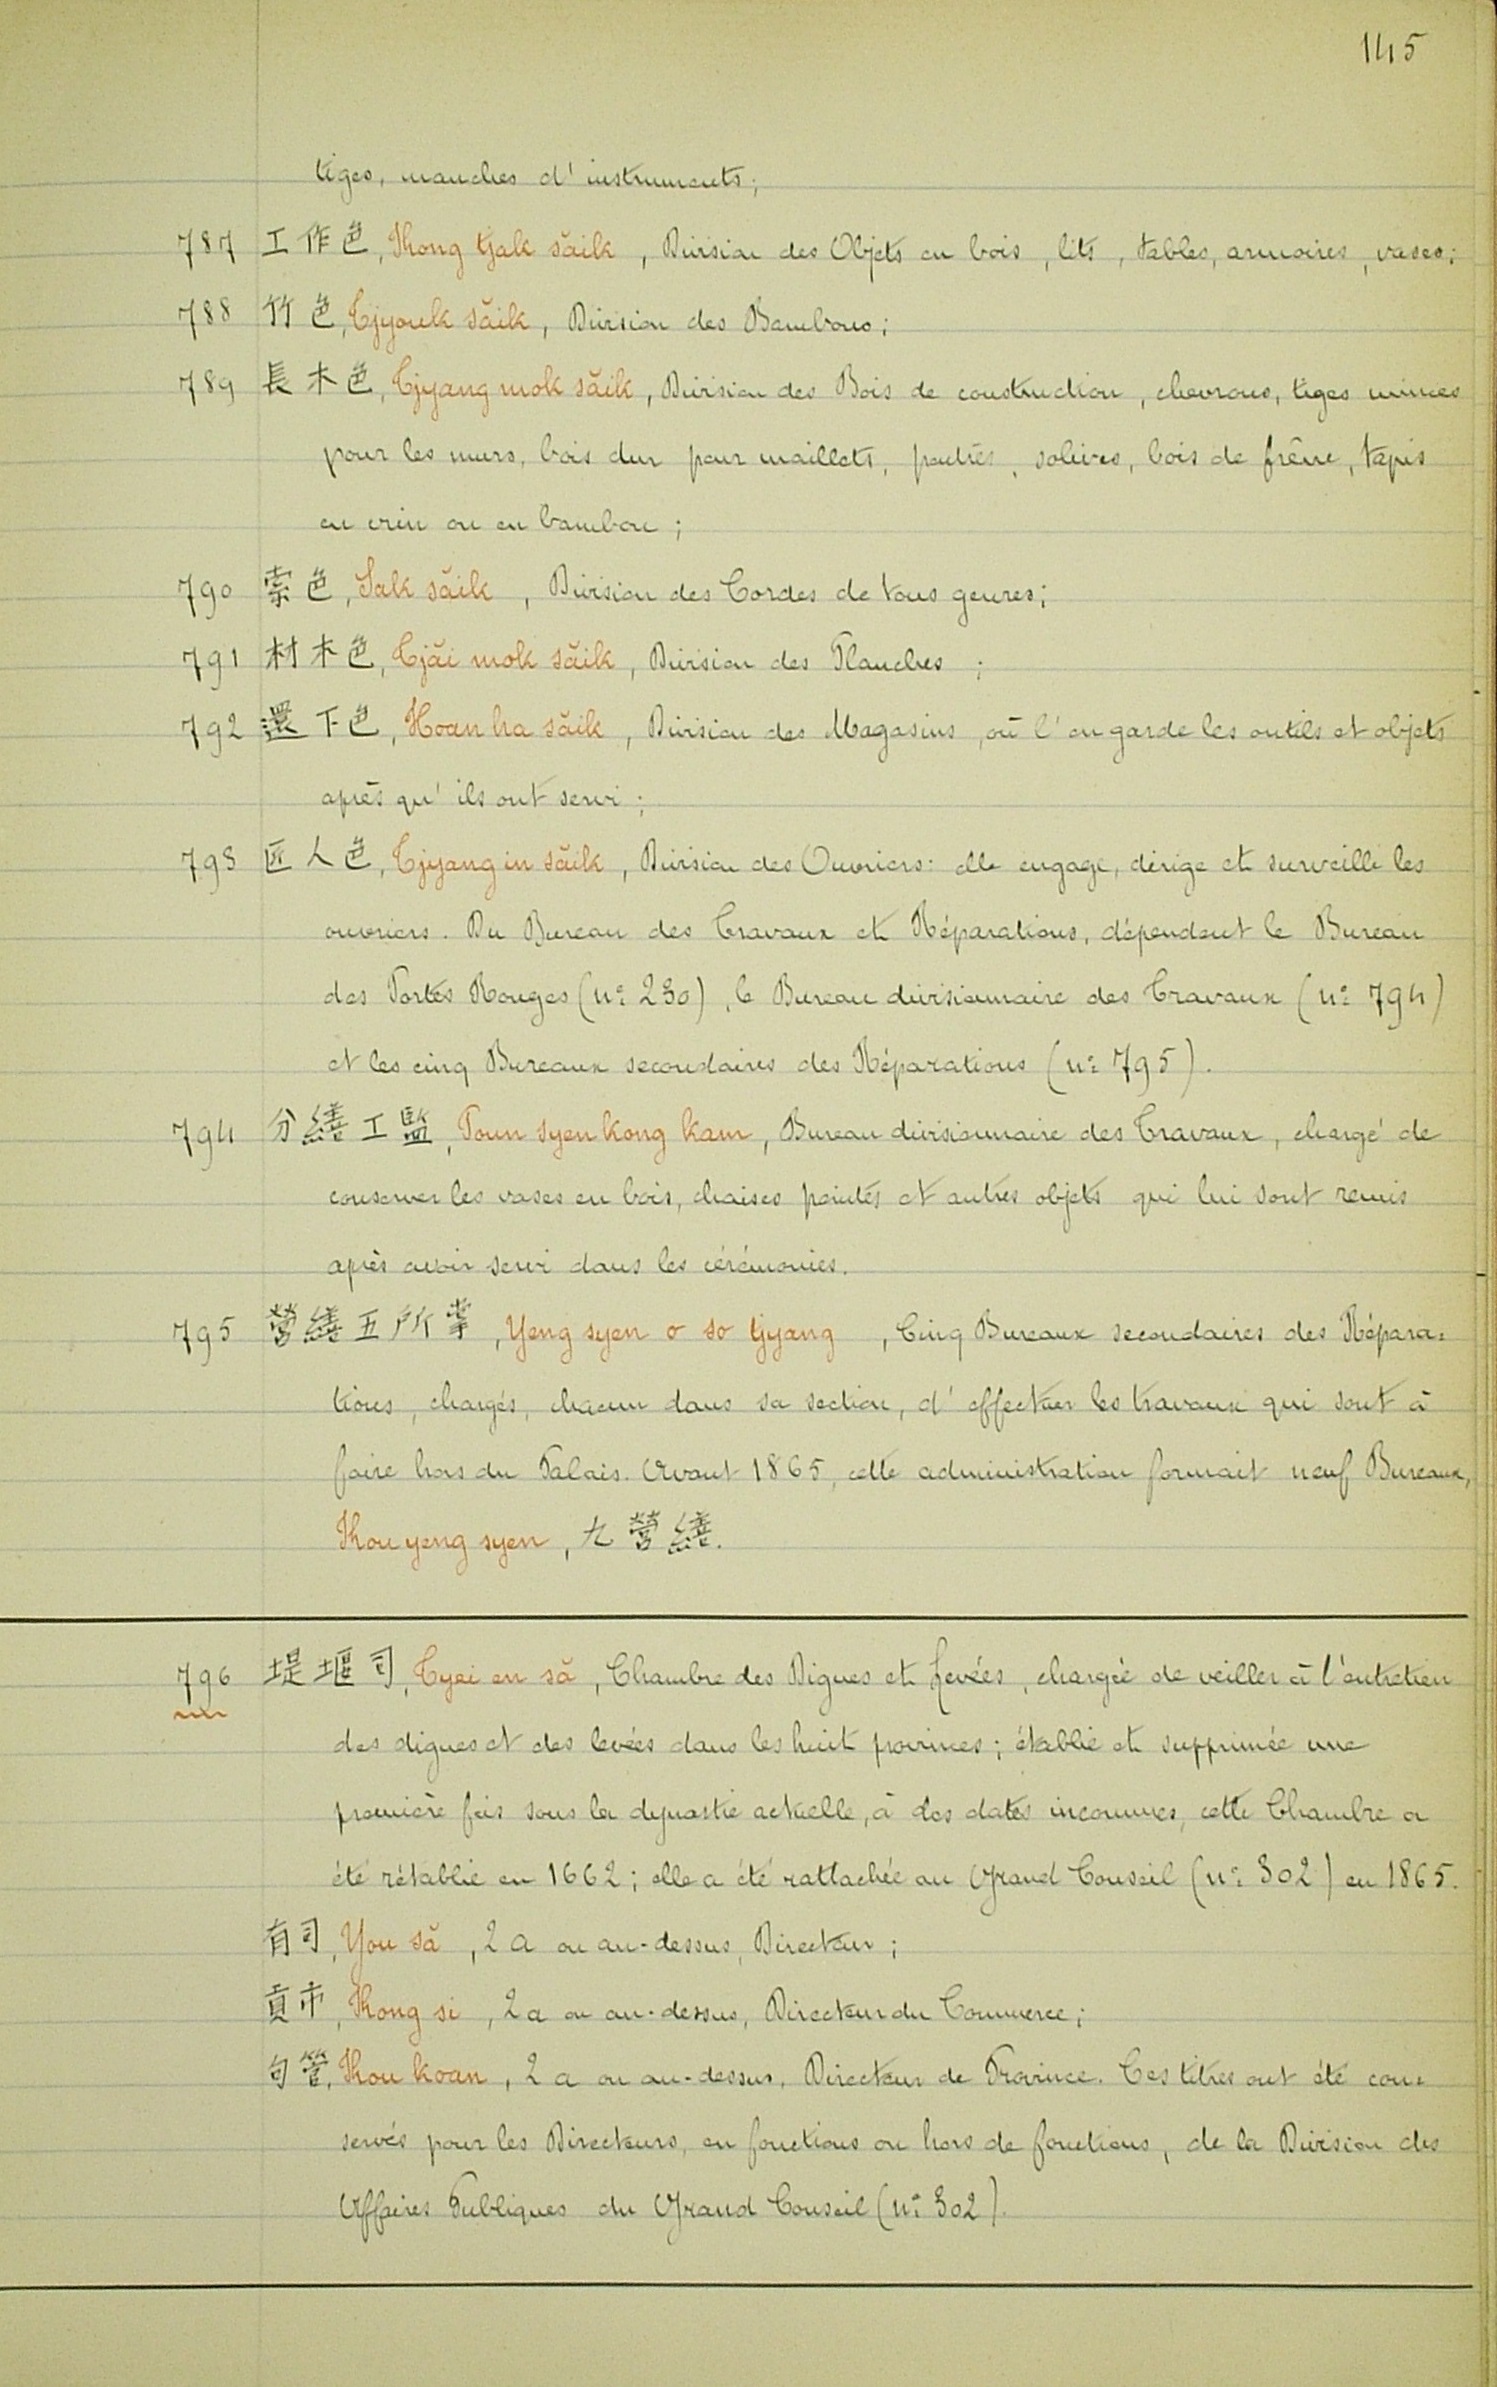 145
tiges, manches d'instruments;
787 工作色, Kong tjak săik, Division des Objets en bois, lits, tables, armoires, vases;
788 竹色, Tjyouk săik, Division des Bambous;
789 長木色, Tjyang mok săik, Division des Bois de construction, chevrons, tiges minces
pour les murs, bois dur pour maillets, poutres, solives, bois de frêne, tapis
en crin ou en bambou;
790 索色, Sak săik, Division des Cordes de tous genres;
791 材木色, Tjăi mok săik, Division des Planches;
792 還下色, Hoan ha săik, Division des Magasins, où l'on garde les outils et objets
après qu'ils ont servi;
793 匠人色, Tjyang in săik, Division des Ouvriers: elle engage, dirige et surveille les
ouvriers. Du Bureau des Travaux et Réparations, dépendent le Bureau
des Portes Rouges (nº 230), le Bureau divisionnaire des Travaux (nº 794)
et les cinq Bureaux secondaires des Réparations (nº 795).
794 分繕工監, Poun syen kong kam, Bureau divisionnaire des Travaux, chargé de
conserver les vases en bois, chaises peintes et autres objets qui lui sont remis
après avoir servi dans les cérémonies.
795 營繕五所掌, Yeng syen o so tjyang, Cinq Bureaux secondaires des Répara=
tions, chargés, chacun dans sa section, d'effectuer les travaux qui sont à
faire hors du Palais. Avant 1865, cette administration formait neuf Bureaux,
Kou yeng syen, 九營繕.
796 堤堰司, Tyei en să, Chambre des Digues et Levées, chargée de veiller à l'entretien
des digues et des levées dans les huit provinces; établie et supprimée une
première fois sous la dynastie actuelle, à des dates inconnues, cette Chambre a
été rétablie en 1662; elle a été rattachée au Grand Conseil (nº 302) en 1865.
有司, You să, 2a ou au-dessus, Directeur;
貢市, Kong si, 2a ou au-dessus, Directeur du Commerce;
句管, Kou koan, 2a ou au-dessus, Directeur de Province. Ces titres ont été con=
servés pour les Directeurs, en fonctions ou hors de fonctions, de la Division des
Affaires Publiques du Grand Conseil (nº 302).